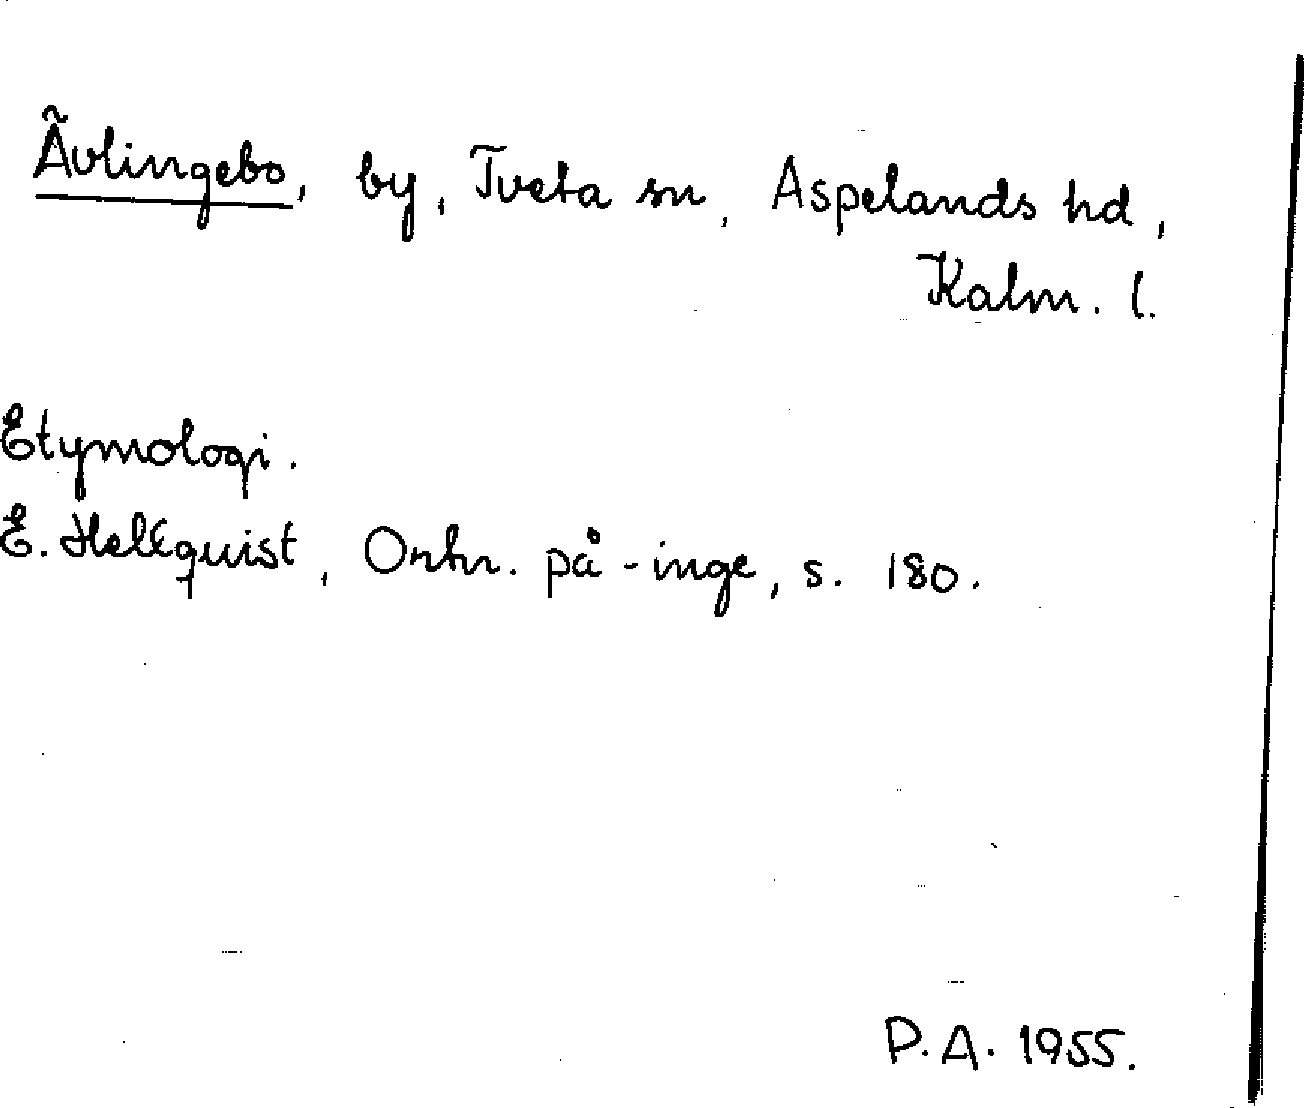 Ävlingebo, by, Tveta sn, Aspelands hd,
Kalm. l.
Etymologi.
E. Hellquist, Ortn. på -inge, s. 180.
P.A. 1955.